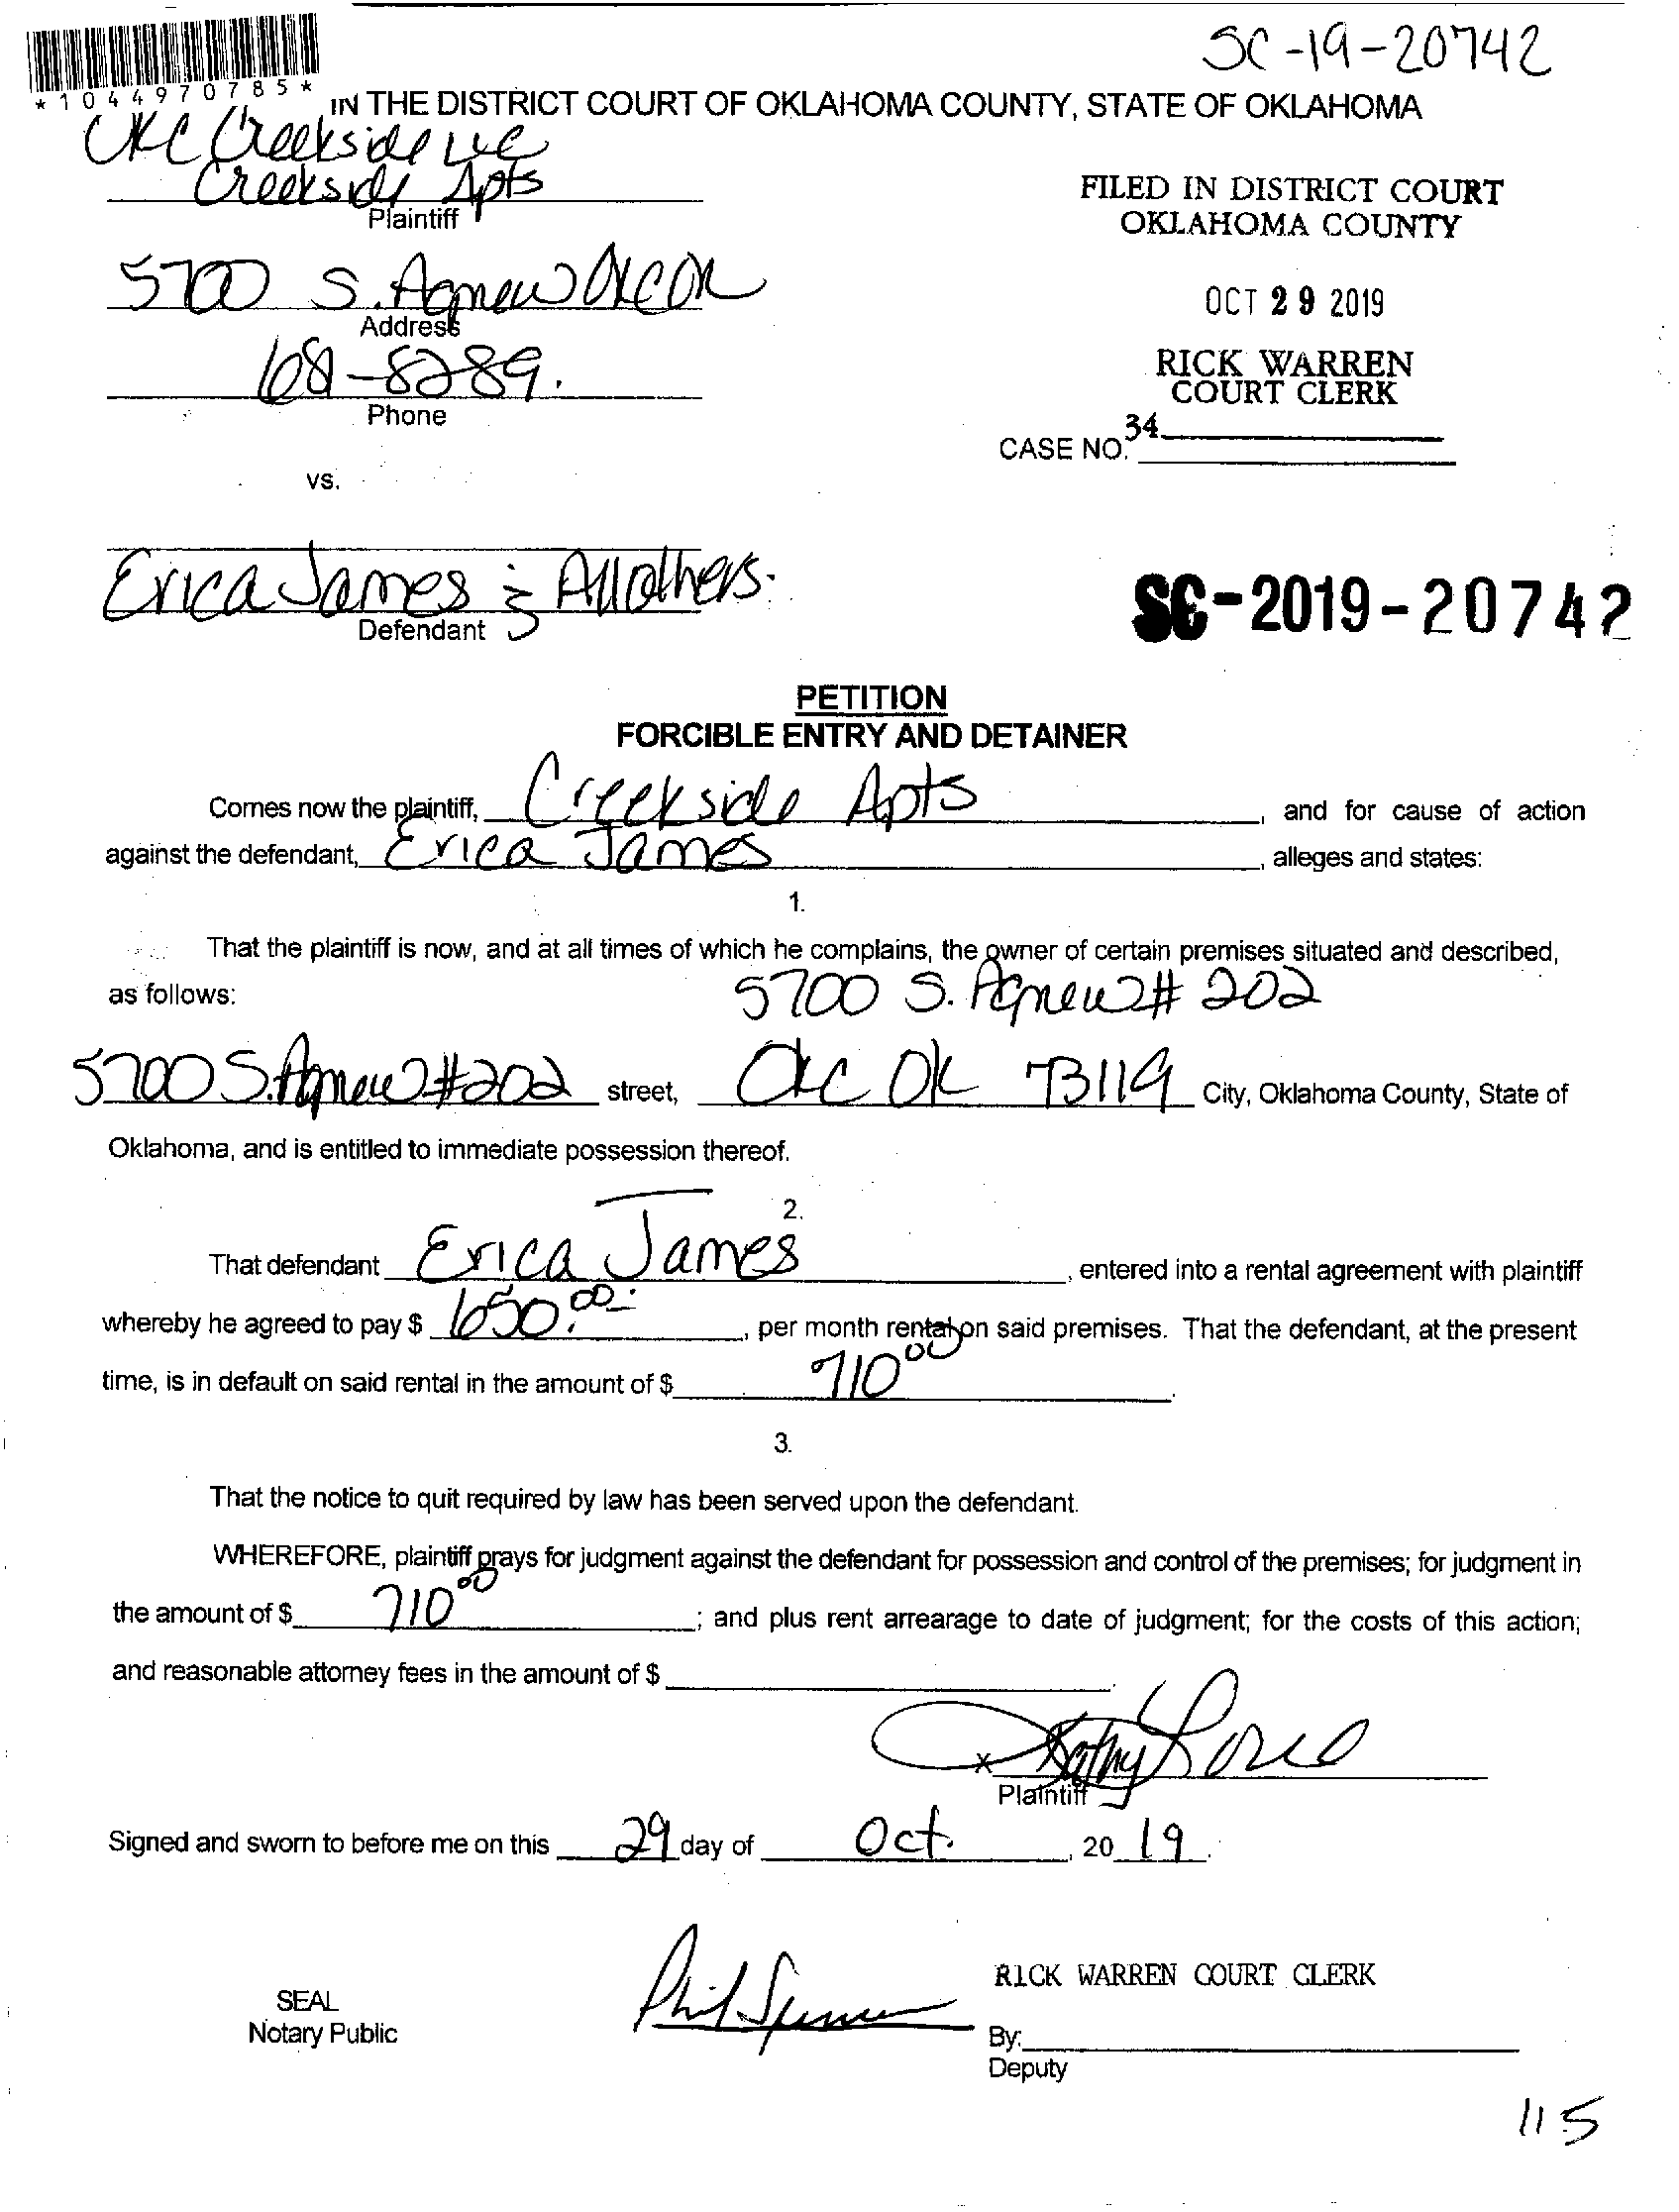 SC-19-20742
*1044970785*
IN THE DISTRICT COURT OF OKLAHOMA COUNTY, STATE OF OKLAHOMA
OKC Creekside LLC
Creekside Apts
Plaintiff
FILED IN DISTRICT COURT
OKLAHOMA COUNTY
5700 S. Agnew OKC OK
Address
OCT 29 2019
681-8289.
Phone
RICK WARREN
COURT CLERK
34
CASE NO.
vs.
Erica James & All others.
Defendant
SC-2019-20742
PETITION
FORCIBLE ENTRY AND DETAINER
Comes now the plaintiff, Creekside Apts, and for cause of action
against the defendant, Erica James, alleges and states:
1.
That the plaintiff is now, and at all times of which he complains, the owner of certain premises situated and described,
as follows: 5700 S. Agnew # 202
5700 S. Agnew #202 street, OKC OK 73119 City, Oklahoma County, State of
Oklahoma, and is entitled to immediate possession thereof.
2.
That defendant Erica James, entered into a rental agreement with plaintiff
whereby he agreed to pay $ 650.00, per month rental on said premises. That the defendant, at the present
time, is in default on said rental in the amount of $ 710 00.
3.
That the notice to quit required by law has been served upon the defendant.
WHEREFORE, plaintiff prays for judgment against the defendant for possession and control of the premises; for judgment in
the amount of $ 710 00; and plus rent arrearage to date of judgment; for the costs of this action;
and reasonable attorney fees in the amount of $
x Kathy
Plaintiff
Signed and sworn to before me on this 29 day of Oct., 20 19.
RICK WARREN COURT CLERK
SEAL
Notary Public
Phil
By:
Deputy
115